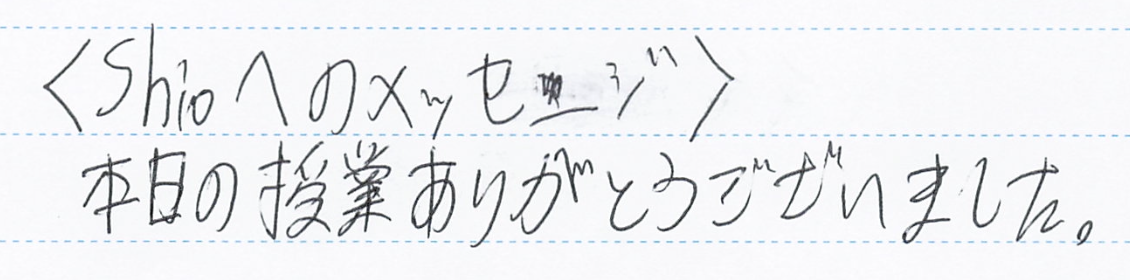 <Shioへのメッセージ>
本日の授業ありがとうございました。